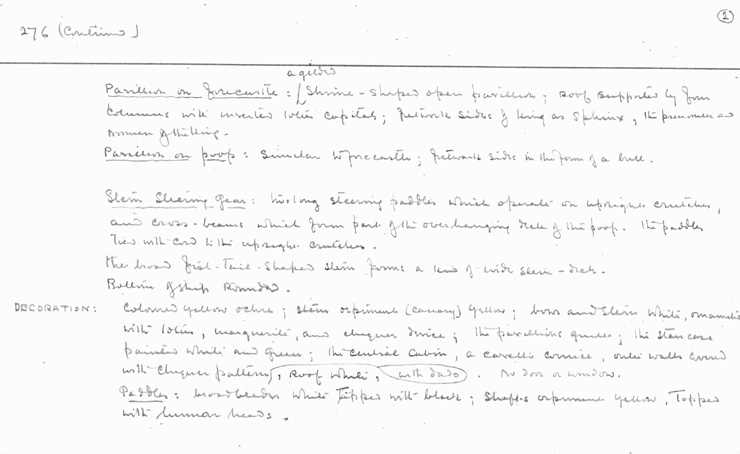 ②
276 (Continued)
a gilded
Pavilion on forecastle : Shrine-shaped open pavilion; roof supported by four
columns with inverted lotus capitals; fretwork sides of king as Sphinx, the prenomen and
nomen of the king.
Pavilion on poop : Similar to forecastle; fretwork sides in the form of a bull.
Stern Steering Gear : two long steering paddles which operate on upright crutches,
and cross-beams which form part of the overhanging deck of the poop. The paddles
tied with cord to the upright crutches.
The broad fish-tail-shaped stern forms a kind of wide stern-deck.
Bottom of ship rounded.
DECORATION : Coloured yellow ochre; stem orpiment (canary) yellow; bows and stern white, ornamented
with lotus, marguerite, and chequer device; the pavilions gilded; the staircase
painted white and green; the central cabin, a cavetto cornice, outer walls covered
with chequer pattern, roof white, with dado. No door or window.
Paddles : broad blades white tipped with black; shafts orpiment yellow, topped
with human heads.